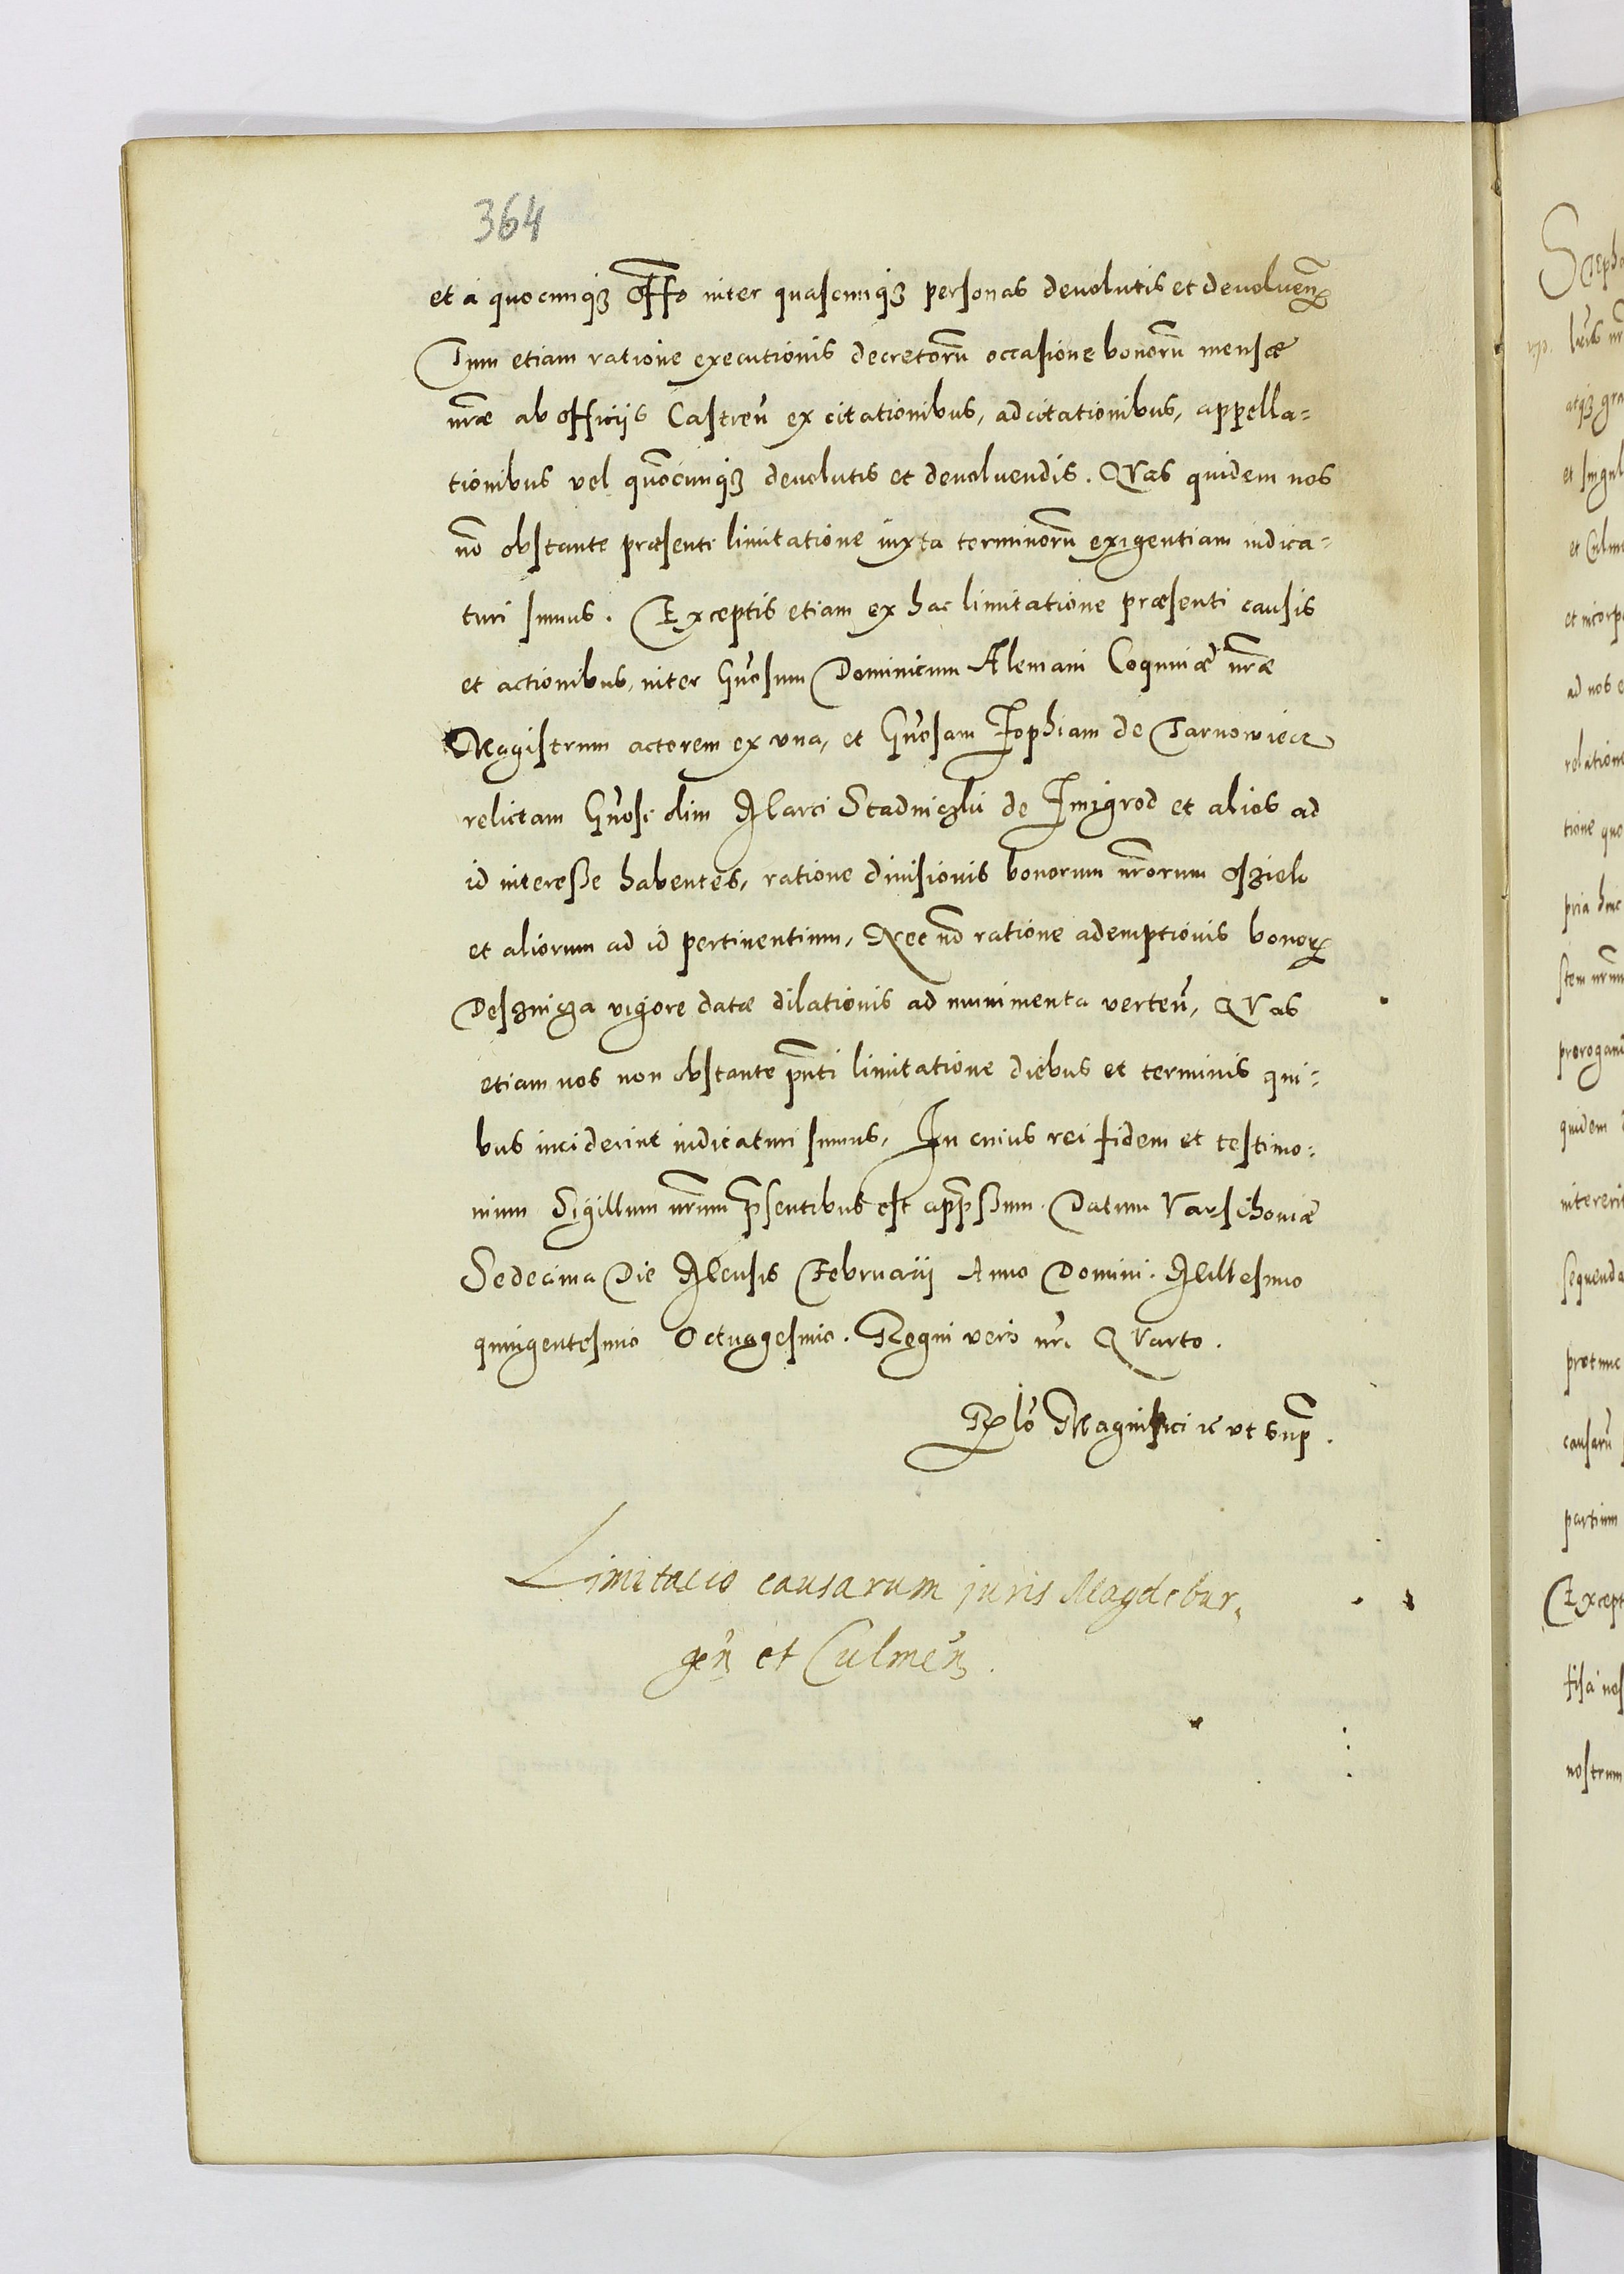 364
et a quocunq̃ȝ Offo inter quascunq̃ȝ personas deuolutis et deuoluen̄
Tum etiam ratione executionis decretorū occasione bonorū mensæ
nr̄æ ab Officijs Castren̄ ex citationibus, adcitationibus, appella=
tionibus vel quōcunq̃ȝ deuolutis et deuoluendis. QVas quidem nos
nō obstante præsenti limitatione iuxta terminorū exigentiam iudica=
turi sumus. Exceptis etiam ex hac limitatione præsenti causis
et actionibus, inter Gn̄osum Dominicum Alemani Coquinæ nr̄æ
Magistrum actorem ex vna, et Gn̄osam Zophiam de Tarnowiecz
relictam Gn̄osi olim Marci Stadniczki de Zmigrod et alios ad
id interesse habentes, ratione diuisionis bonorum nr̄orum Osziek
et aliorum ad id pertinentium, Nec nō ratione ademptionis bonoꝝ
Deszniczа vigore datæ dilationis ad munimenta verten̄, QVas
etiam nos non obstante pn̄ti limitatione diebus et terminis qui=
bus inciderint iudicaturi sumus, In cuius rei fidem et testimo=
nium Sigillum nr̄um pn̄sentibus est app̄ssum. Datum Varschoviæ
Sedecima Die Mensis Februarij Anno Domini. Millesimo
quingentesimo Octuagesimo. Regni vero nr̄i QVarto.
Rlō Magnifici ꝛc vt sup̄.
Limitacio causarum juris Magdebur,
gen̄ et Culmen̄.
Steph
atqȝ gra
et singul
et Culme
et incorp
ad nos e
relatione
tione quo
pria hac
stem nr̄um
prorogand
quidem
intererit
sequenda
causarū
partium
Except
nostrum